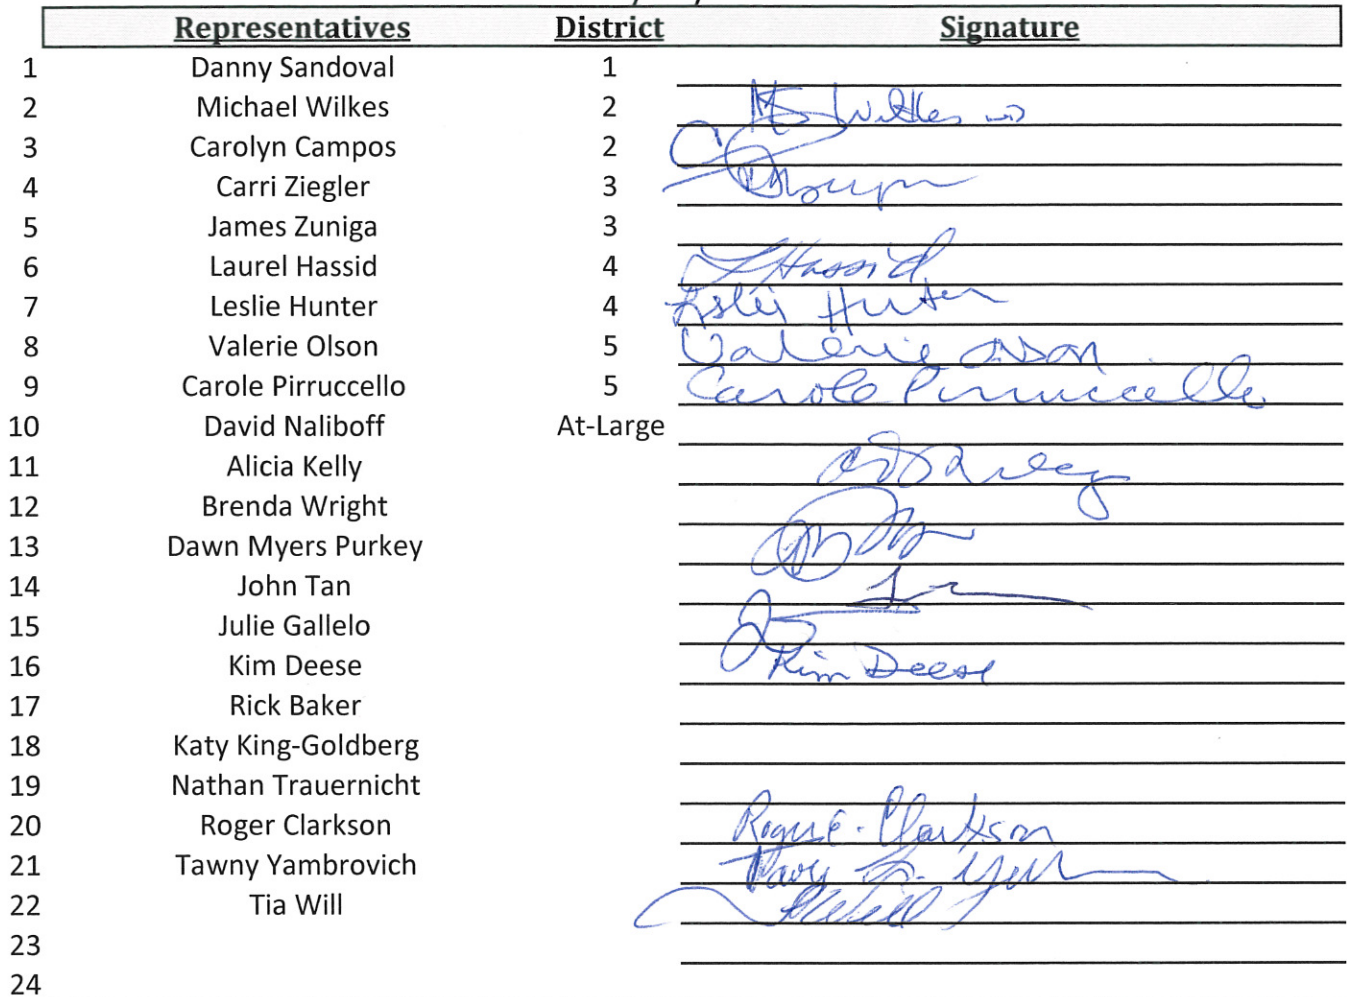 Representatives District Signature
1 Danny Sandoval 1
2 Michael Wilkes 2 Wilkes
3 Carolyn Campos 2
4 Carri Ziegler 3
5 James Zuniga 3
6 Laurel Hassid 4 L Hassid
7 Leslie Hunter 4 Leslie Hunter
8 Valerie Olson 5 Valerie Olson
9 Carole Pirruccello 5 Carole Pirruccello
10 David Naliboff At-Large
11 Alicia Kelly
12 Brenda Wright
13 Dawn Myers Purkey
14 John Tan
15 Julie Gallelo
16 Kim Deese Kim Deese
17 Rick Baker
18 Katy King-Goldberg
19 Nathan Trauernicht
20 Roger Clarkson Roger Clarkson
21 Tawny Yambrovich
22 Tia Will
23
24